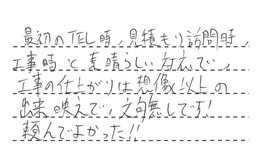 最初のTEL時、見積もり訪問時、
工事時と素晴らしい対応で、
工事の仕上がりは想像以上の
出来映えで、文句無しです!
頼んでよかった!!